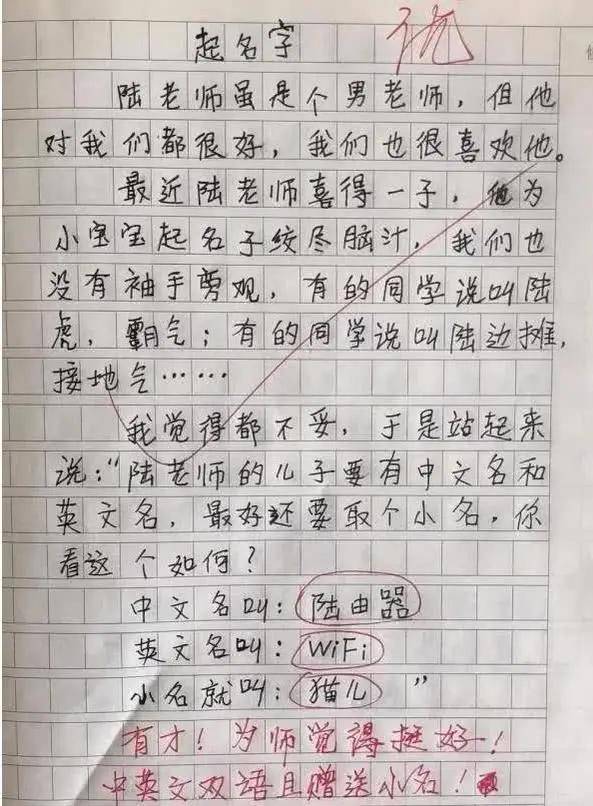 起名字 优
陆老师虽是个男老师，但他
对我们都很好，我们也很喜欢他。
最近陆老师喜得一子，他为
小宝宝起名子绞尽脑汁，我们也
没有袖手剪观，有的同学说叫陆
虎，霸气；有的同学说叫陆边摊，
接地气……
我觉得都不妥，于是站起来
说：“陆老师的儿子要有中文名和
英文名，最好还要取个小名，你
看这个如何？
中文名叫：陆由器
英文名叫：WiFi
小名就叫：猫儿”
有才！为师觉得挺好！
中英文双语且赠送小名！